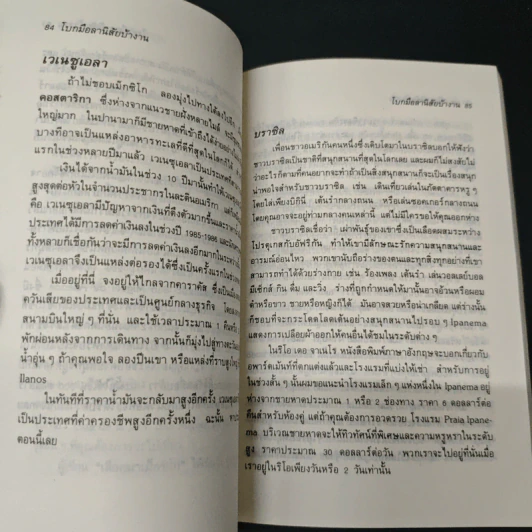 84 โบกมือลานิสัยบ้างาน
เวเนซูเอลา
ถ้าไม่ชอบเม็กซิโก ลองมุ่งไปทางใต้ลงไปอีก
คอสตาริกา ซึ่งห่างจากแนวชายฝั่งหลายไมล์
ใหญ่มาก ในปานามาก็มีชายหาดที่เข้าถึงได้ง่าย
บางทีอาจเป็นแหล่งอาหารทะเลที่ดีที่สุดในโลกก็ได้
แรกในช่วงหลายปีมาแล้ว เวเนซูเอลาเป็นประเทศที่
เงินได้จากน้ำมันในช่วง 10 ปีมานั้นทำให้
สูงสุดต่อหัวในจำนวนประชากรในละตินอเมริกา
คือ เวเนซูเอลามีปัญหาจากเงินที่ตึงตัวมากขึ้นและ
ประเทศได้มีการลดค่าเงินลงในช่วงปี 1985-1986
ทั้งหลายก็เชื่อกันว่าจะมีการลดค่าเงินลงอีกมากใน
เวเนซูเอลาจึงเป็นแหล่งต่อรองได้ซึ่งเป็นครั้งแรกใน
เมื่ออยู่ที่นี่ จงอยู่ให้ไกลจากคาราคัส ซึ่งเป็น
ควันเสียของประเทศและเป็นศูนย์กลางธุรกิจ
สนามบินใหญ่ ๆ ที่นั่น และใช้เวลาประมาณ 1 คืน
พักผ่อนหลังจากการเดินทาง จากนั้นก็มุ่งไปสู่ทาง
น้ำอุ่น ๆ ถ้าคุณพอใจ ลองปีนเขา หรือแหล่งที่ราบสูง
llanos
ในทันทีที่ราคาน้ำมันจะกลับมาสูงอีกครั้ง
เป็นประเทศที่ค่าครองชีพสูงอีกครั้งหนึ่ง ฉะนั้น
ตอนนี้เลย
โบกมือลานิสัยบ้างาน 85
บราซิล
เพื่อนชาวอเมริกันคนหนึ่งซึ่งเติบโตมาในบราซิลบอกให้ฟังว่า
ชาวบราซิลเป็นชาติที่สนุกสนานที่สุดในโลกเลย และผมก็ไม่สงสัยไม่
ว่าอะไรก็ตามที่คนอยากจะทำถ้าเป็นสิ่งสนุกสนานก็จะเป็นเรื่องสนุก
น่าพอใจสำหรับชาวบราซิล เช่น เดินเที่ยวเล่นในภัตตาคารหรู ๆ
โดยใส่เพียงบิกินี่ เต้นรำกลางถนน หรือเล่นซอคเกอร์กลางถนน
โดยคุณอาจจะอยู่ท่ามกลางคนเหล่านี้ แต่ไม่มีใครขอให้คุณออกห่าง
ชาวบราซิลเชื่อว่า เผ่าพันธุ์ของเขาซึ่งเป็นเลือดผสมระหว่าง
โปรตุเกสกับอัฟริกัน ทำให้เขามีลักษณะรักความสนุกสนานและ
อารมณ์อ่อนไหว พวกเขานับถือร่างของตนและทุกสิ่งทุกอย่างที่เขา
สามารถทำได้ด้วยร่างกาย เช่น ร้องเพลง เต้นรำ เล่นวอลเลย์บอล
มีเซ็กส์ กิน ดื่ม และวิ่ง ร่างที่ถูกกำหนดให้มานั้นอาจอ้วนหรือผอม
ดำหรือขาว ชายหรือหญิงก็ได้ มันอาจสวยหรือน่าเกลียด แต่ร่างนั้น
ก็ชอบที่จะกระโดดโลดเต้นอย่างสนุกสนานไปรอบ ๆ Ipanema
แสดงการเปลือยผ้าออกให้คนอื่นได้ชมในระดับต่าง ๆ
ในรีโอ เดอ จาเนโร หนังสือพิมพ์ภาษาอังกฤษจะบอกเกี่ยวกับ
อพาร์ตเม้นท์ที่ตกแต่งแล้วและโรงแรมที่แบ่งให้เช่า สำหรับการอยู่
ในช่วงสั้น ๆ นั้นผมขอแนะนำโรงแรมเล็ก ๆ แห่งหนึ่งใน Ipanema อยู่
ห่างจากชายหาดประมาณ 1 หรือ 2 ช่องทาง ราคา 8 ดอลลาร์ต่อ
คืนสำหรับห้องคู่ แต่ถ้าคุณต้องการอวดรวย โรงแรม Praia Ipane-
ma บริเวณชายหาดจะให้ทิวทัศน์ที่พิเศษและความหรูหราในระดับ
สูง ราคาประมาณ 30 ดอลลาร์ต่อวัน พวกเราจะไปอยู่ที่นั่นเมื่อ
เราอยู่ในรีโอเพียงวันหรือ 2 วันเท่านั้น